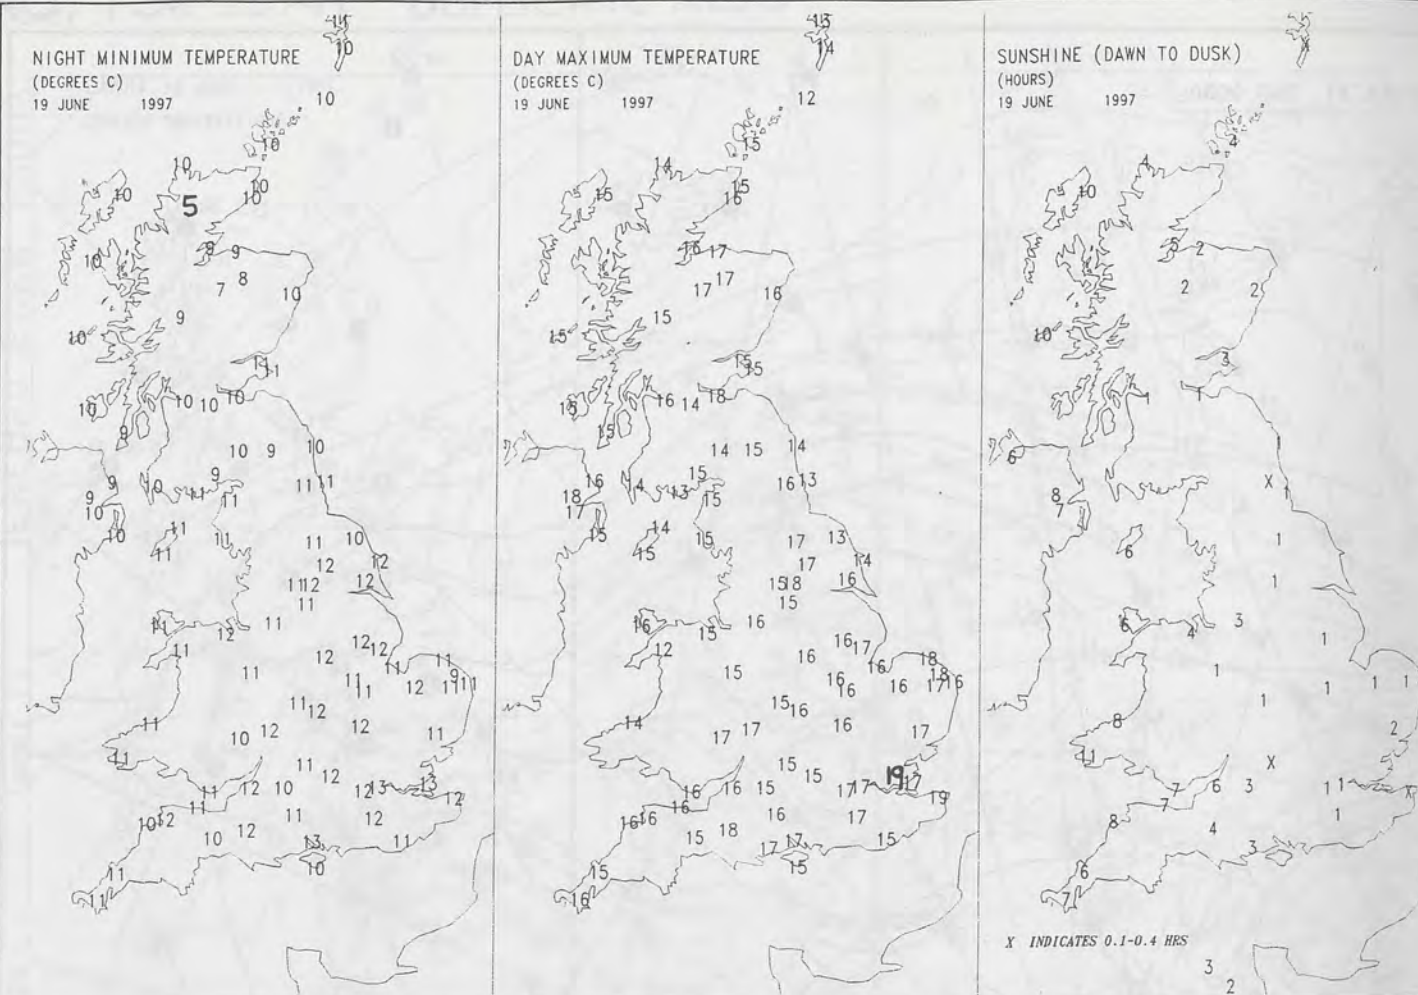 NIGHT MINIMUM TEMPERATURE
(DEGREES C)
19 JUNE 1997
10
10
10
10
10
10
10
5
9
9
10
8
7
10
9
10
11
11
10
10
10
10
9
10
9
10
9
9
10
11
11
9
10
11
11
10
11
11
11
11
10
12
12
11
12
12
11
11
11
12
12
12
11
12
11
11
11
9
11
11
12
11
11
11
12
12
11
10
12
11
11
11
12
11
12
10
12
13
13
12
11
10
12
11
12
10
12
13
11
10
11
11
DAY MAXIMUM TEMPERATURE
(DEGREES C)
19 JUNE 1997
15
14
12
15
14
15
15
16
16
17
17
17
16
15
15
15
15
16
18
14
15
15
14
15
14
16
14
15
13
15
16
13
18
17
15
14
15
15
17
13
17
14
15
18
16
15
16
15
16
12
16
17
16
16
18
15
16
16
16
18
17
16
15
16
14
17
17
16
17
15
15
19
17
16
16
15
17
17
19
16
16
16
16
17
15
18
17
17
15
15
15
16
SUNSHINE (DAWN TO DUSK)
(HOURS)
19 JUNE 1997
X
4
4
10
5
2
2
2
10
3
1
1
1
6
X
1
8
7
6
1
1
3
6
4
1
1
1
1
1
1
8
2
11
X
7
6
3
1
1
7
8
4
1
3
6
7
X INDICATES 0.1-0.4 HRS
3
2